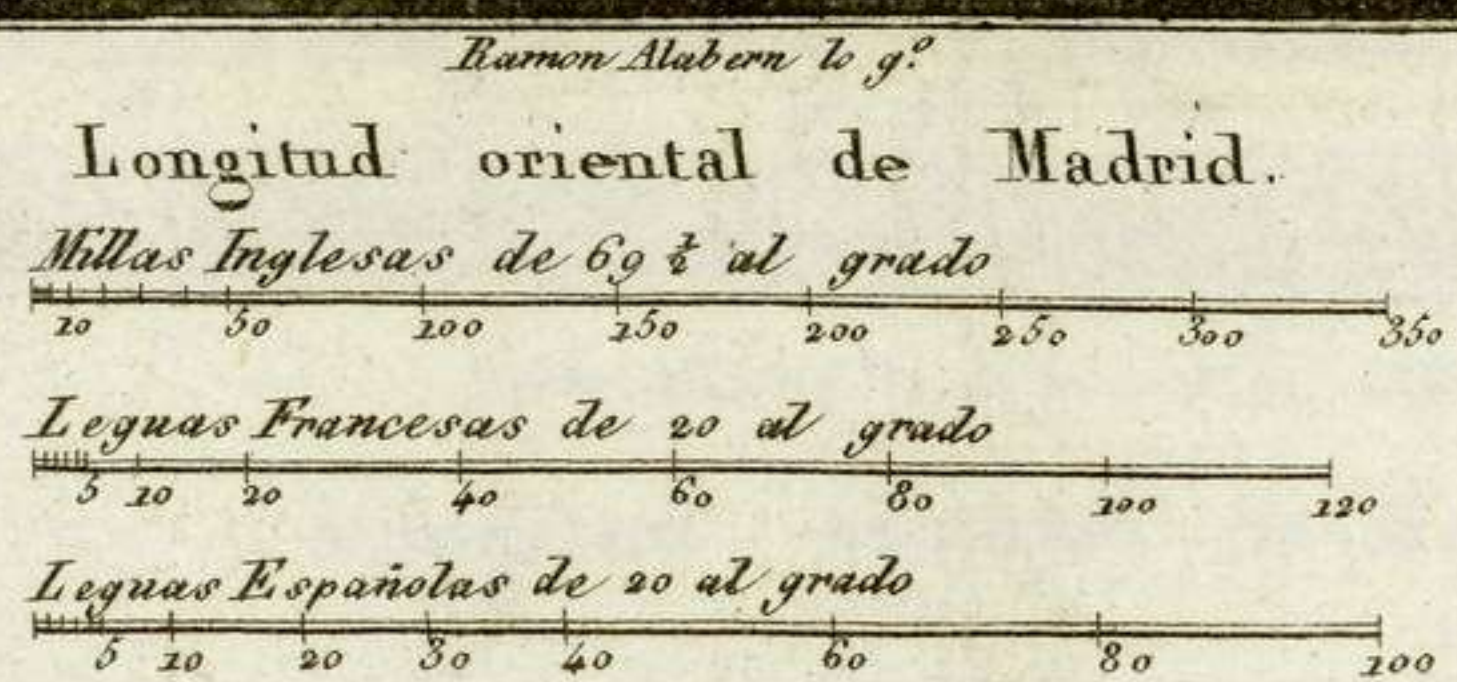 Ramon Alabern lo g.º
Longitud oriental de Madrid.
Millas Inglesas de 69 ½ al grado
10 50 100 150 200 250 300 350
Leguas Francesas de 20 al grado
5 10 20 40 60 80 100 120
Leguas Españolas de 20 al grado
5 10 20 30 40 60 80 100